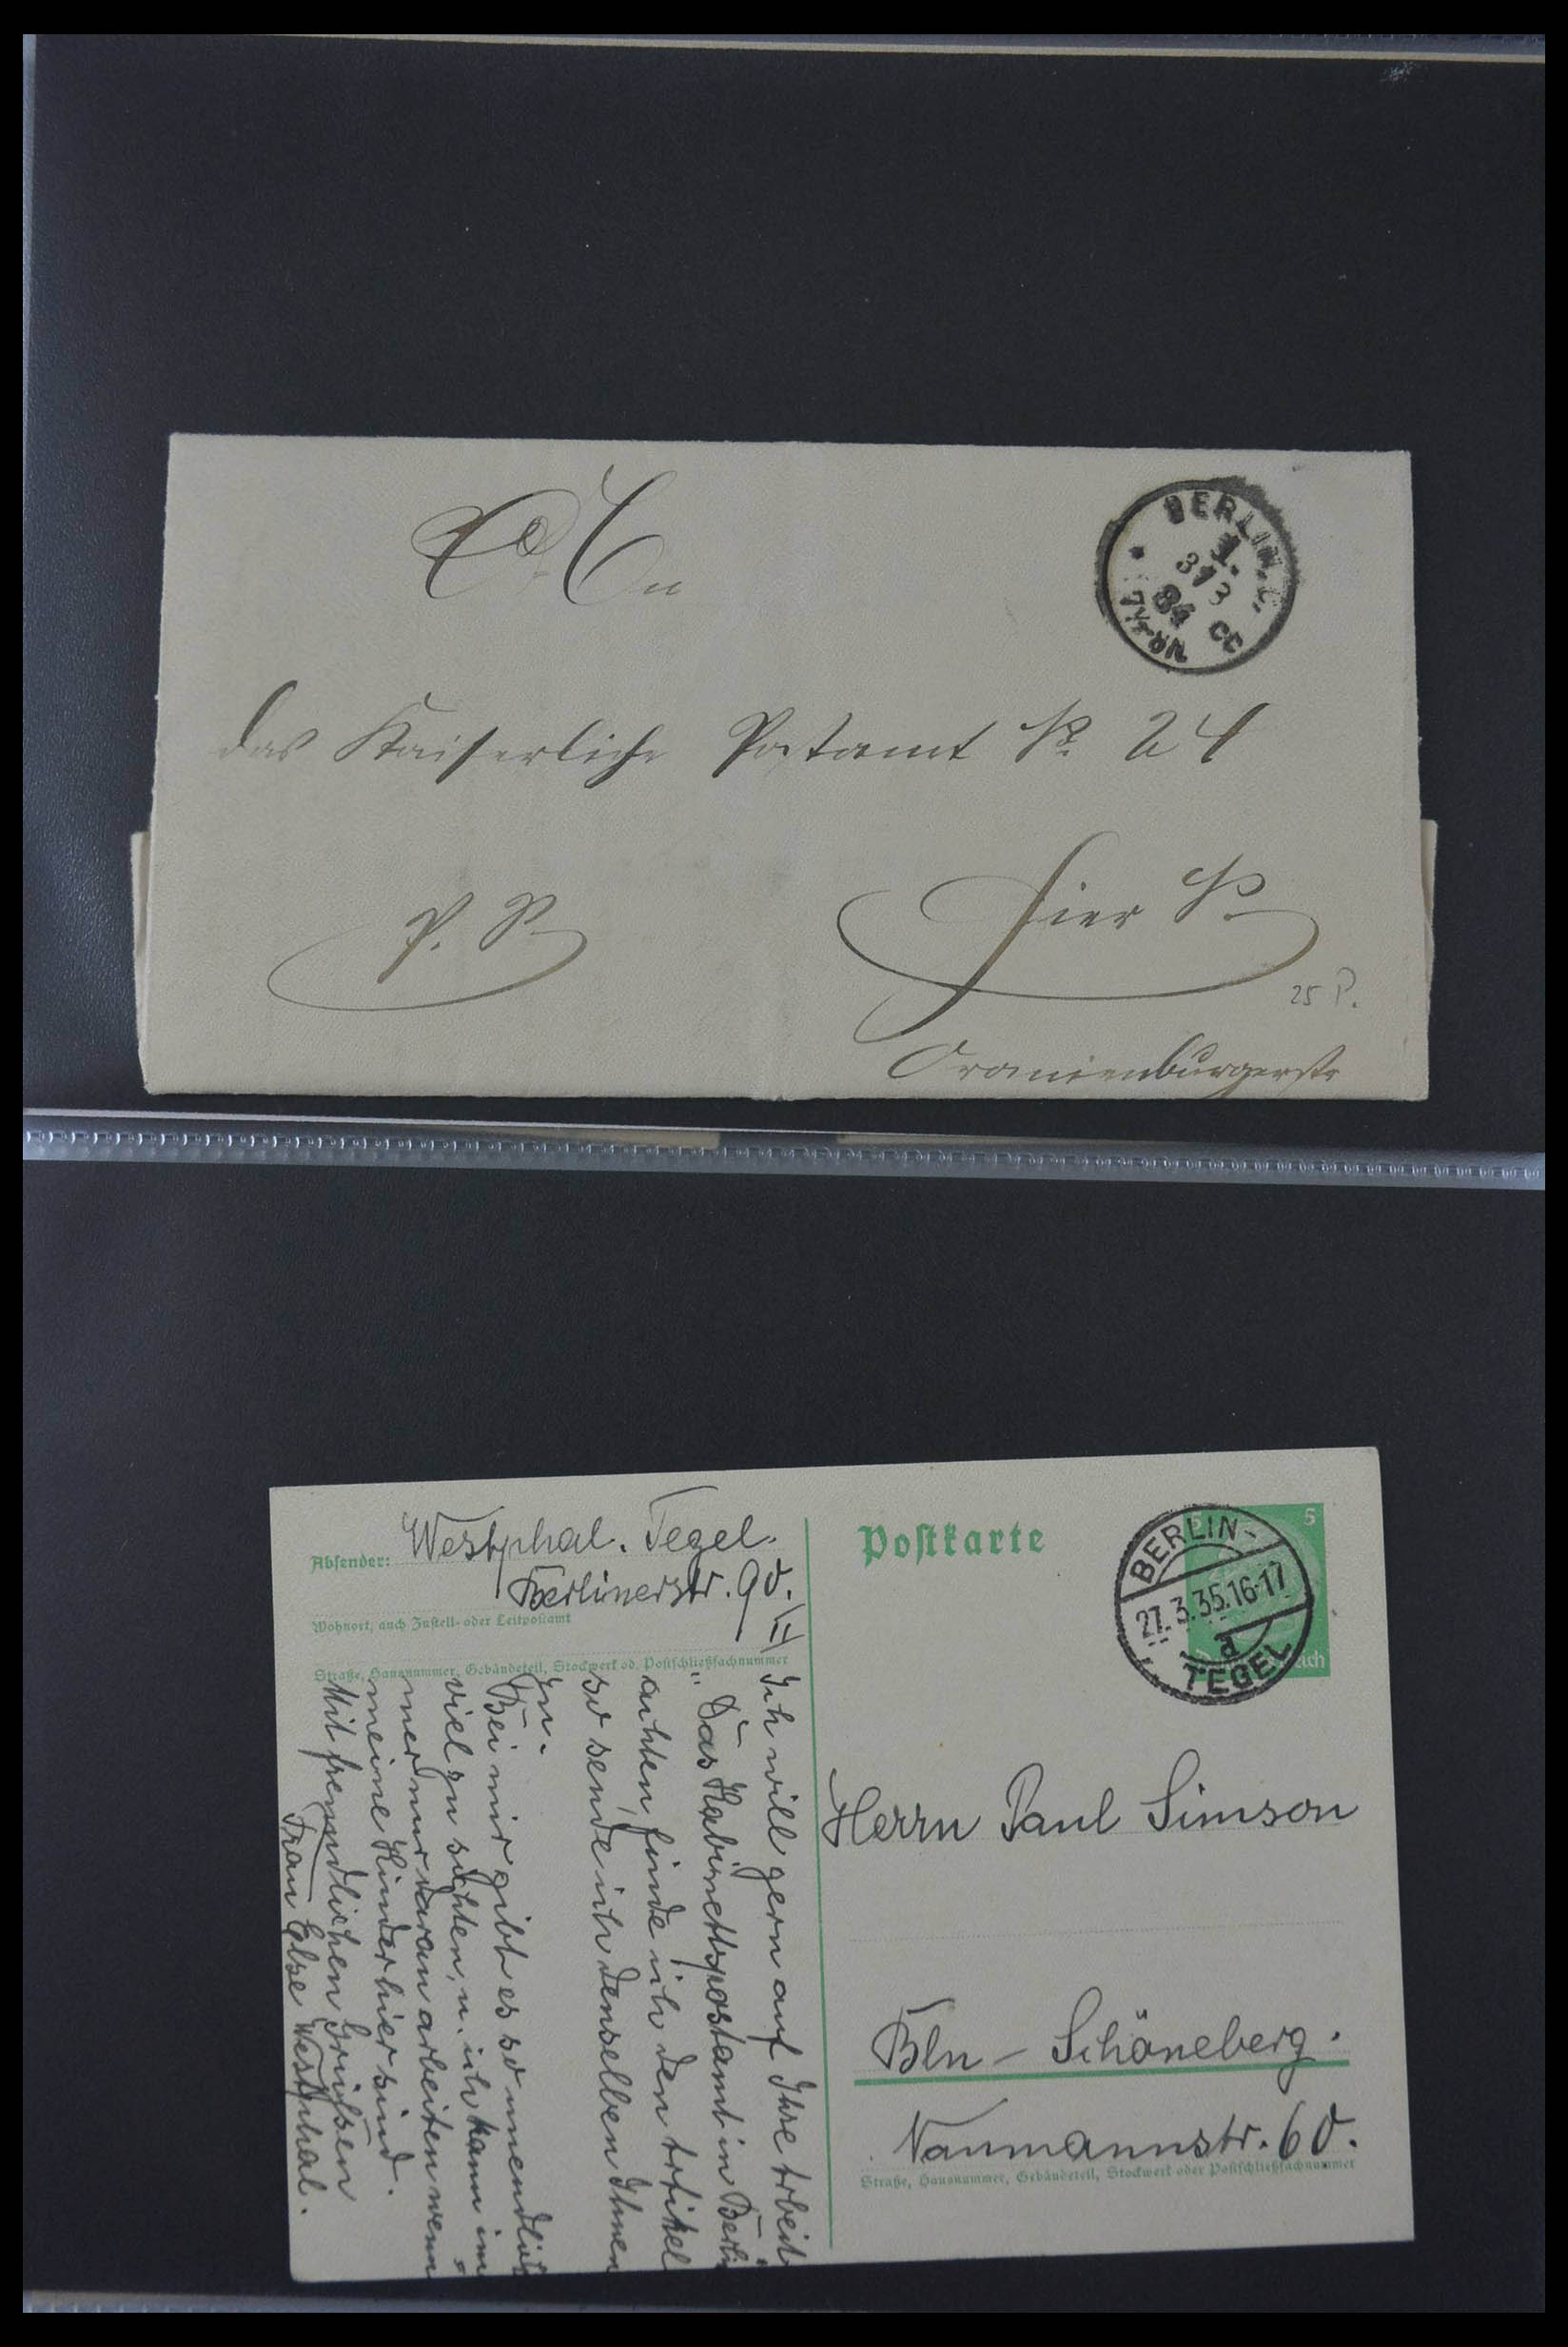 An
das Kaiserliche Postamt No 24
P. S.
Hier N.
25 P.
Oranienburgerstr
BERLIN. C.
1.
31 3
84 CC
7½-8½N
Absender: Westphal. Tegel.
Berlinerstr. 90. II
Wohnort, auch Zustell- oder Leitpostamt
Straße, Hausnummer, Gebäudeteil, Stockwerk od. Postschließfachnummer
Ich will gern auf Ihre Arbeit
"Das Kabinettspostamt in Berlin"
achten, finde ich den Artikel
so sende ich denselben Ihnen
zu.
Bei mir gibt es so unendlich
viel zu sichten, u. ich kann im=
mer nur daran arbeiten wenn
meine Kinder hier sind.
Mit freundlichen Grüßen
Frau Else Westphal.
Postkarte
5 5
BERLIN-
27.3.35.16-17
d
TEGEL
Herrn Paul Simson
Bln - Schöneberg.
Naumannstr. 60.
Straße, Hausnummer, Gebäudeteil, Stockwerk oder Postschließfachnummer